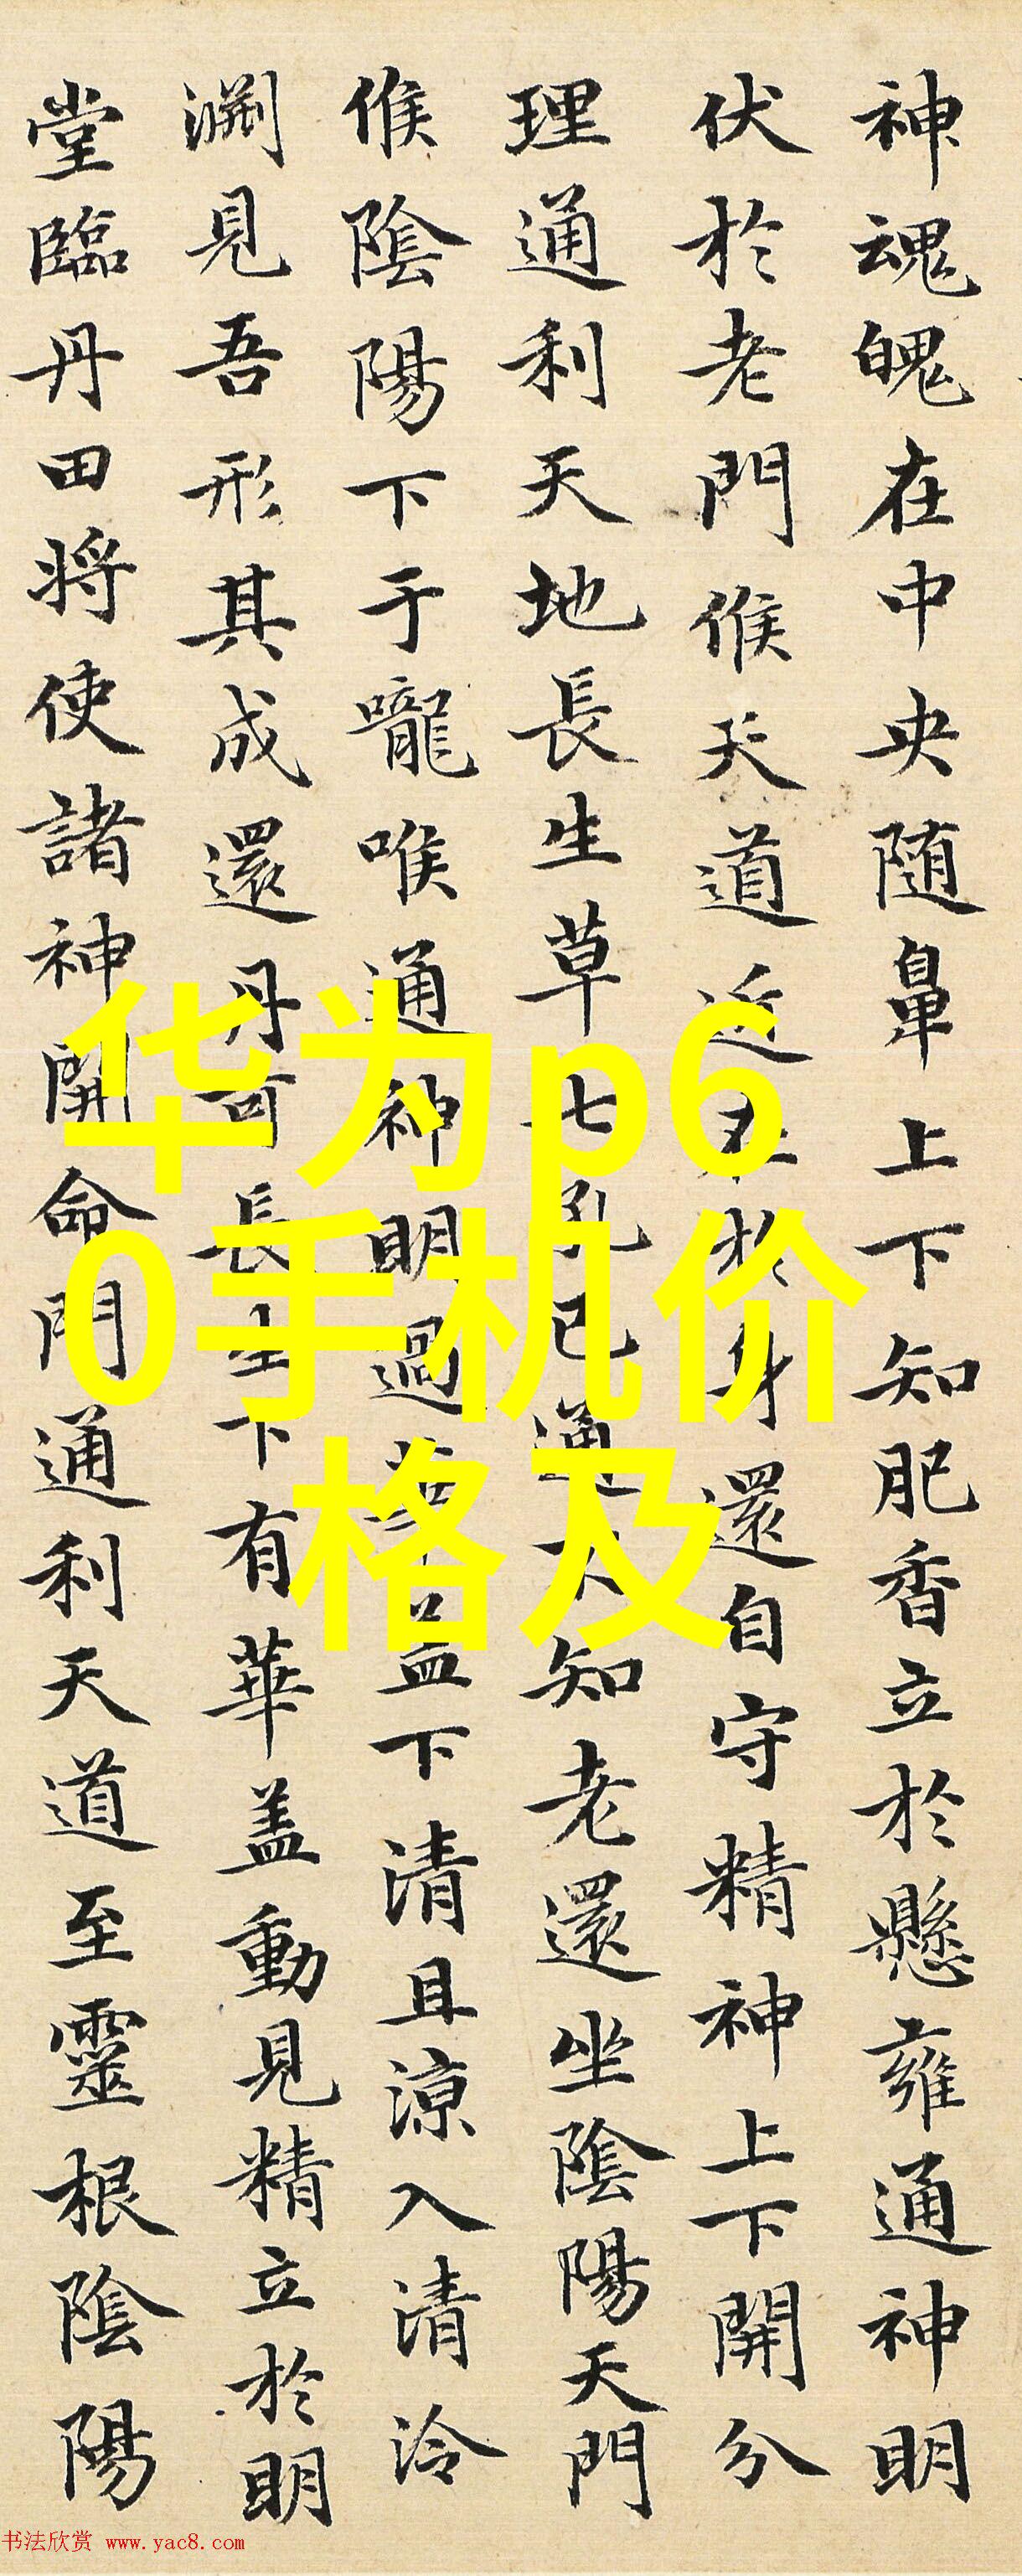 神魂魄在中央随鼻上下知肥香立於懸雍通神明
伏於老門候天道近在於身還自守精神上下開分
理通利天地長生草七孔已通不知老還坐陰陽天門
候陰陽下于嚨喉通神明過華蓋下清且涼入清泠
渊見吾形其成還丹可長生下有華盖動見精立於明
堂臨丹田将使諸神開命門通利天道至靈根陰陽
华为p6
0手机价
格及
书法欣赏 www.yac8.com